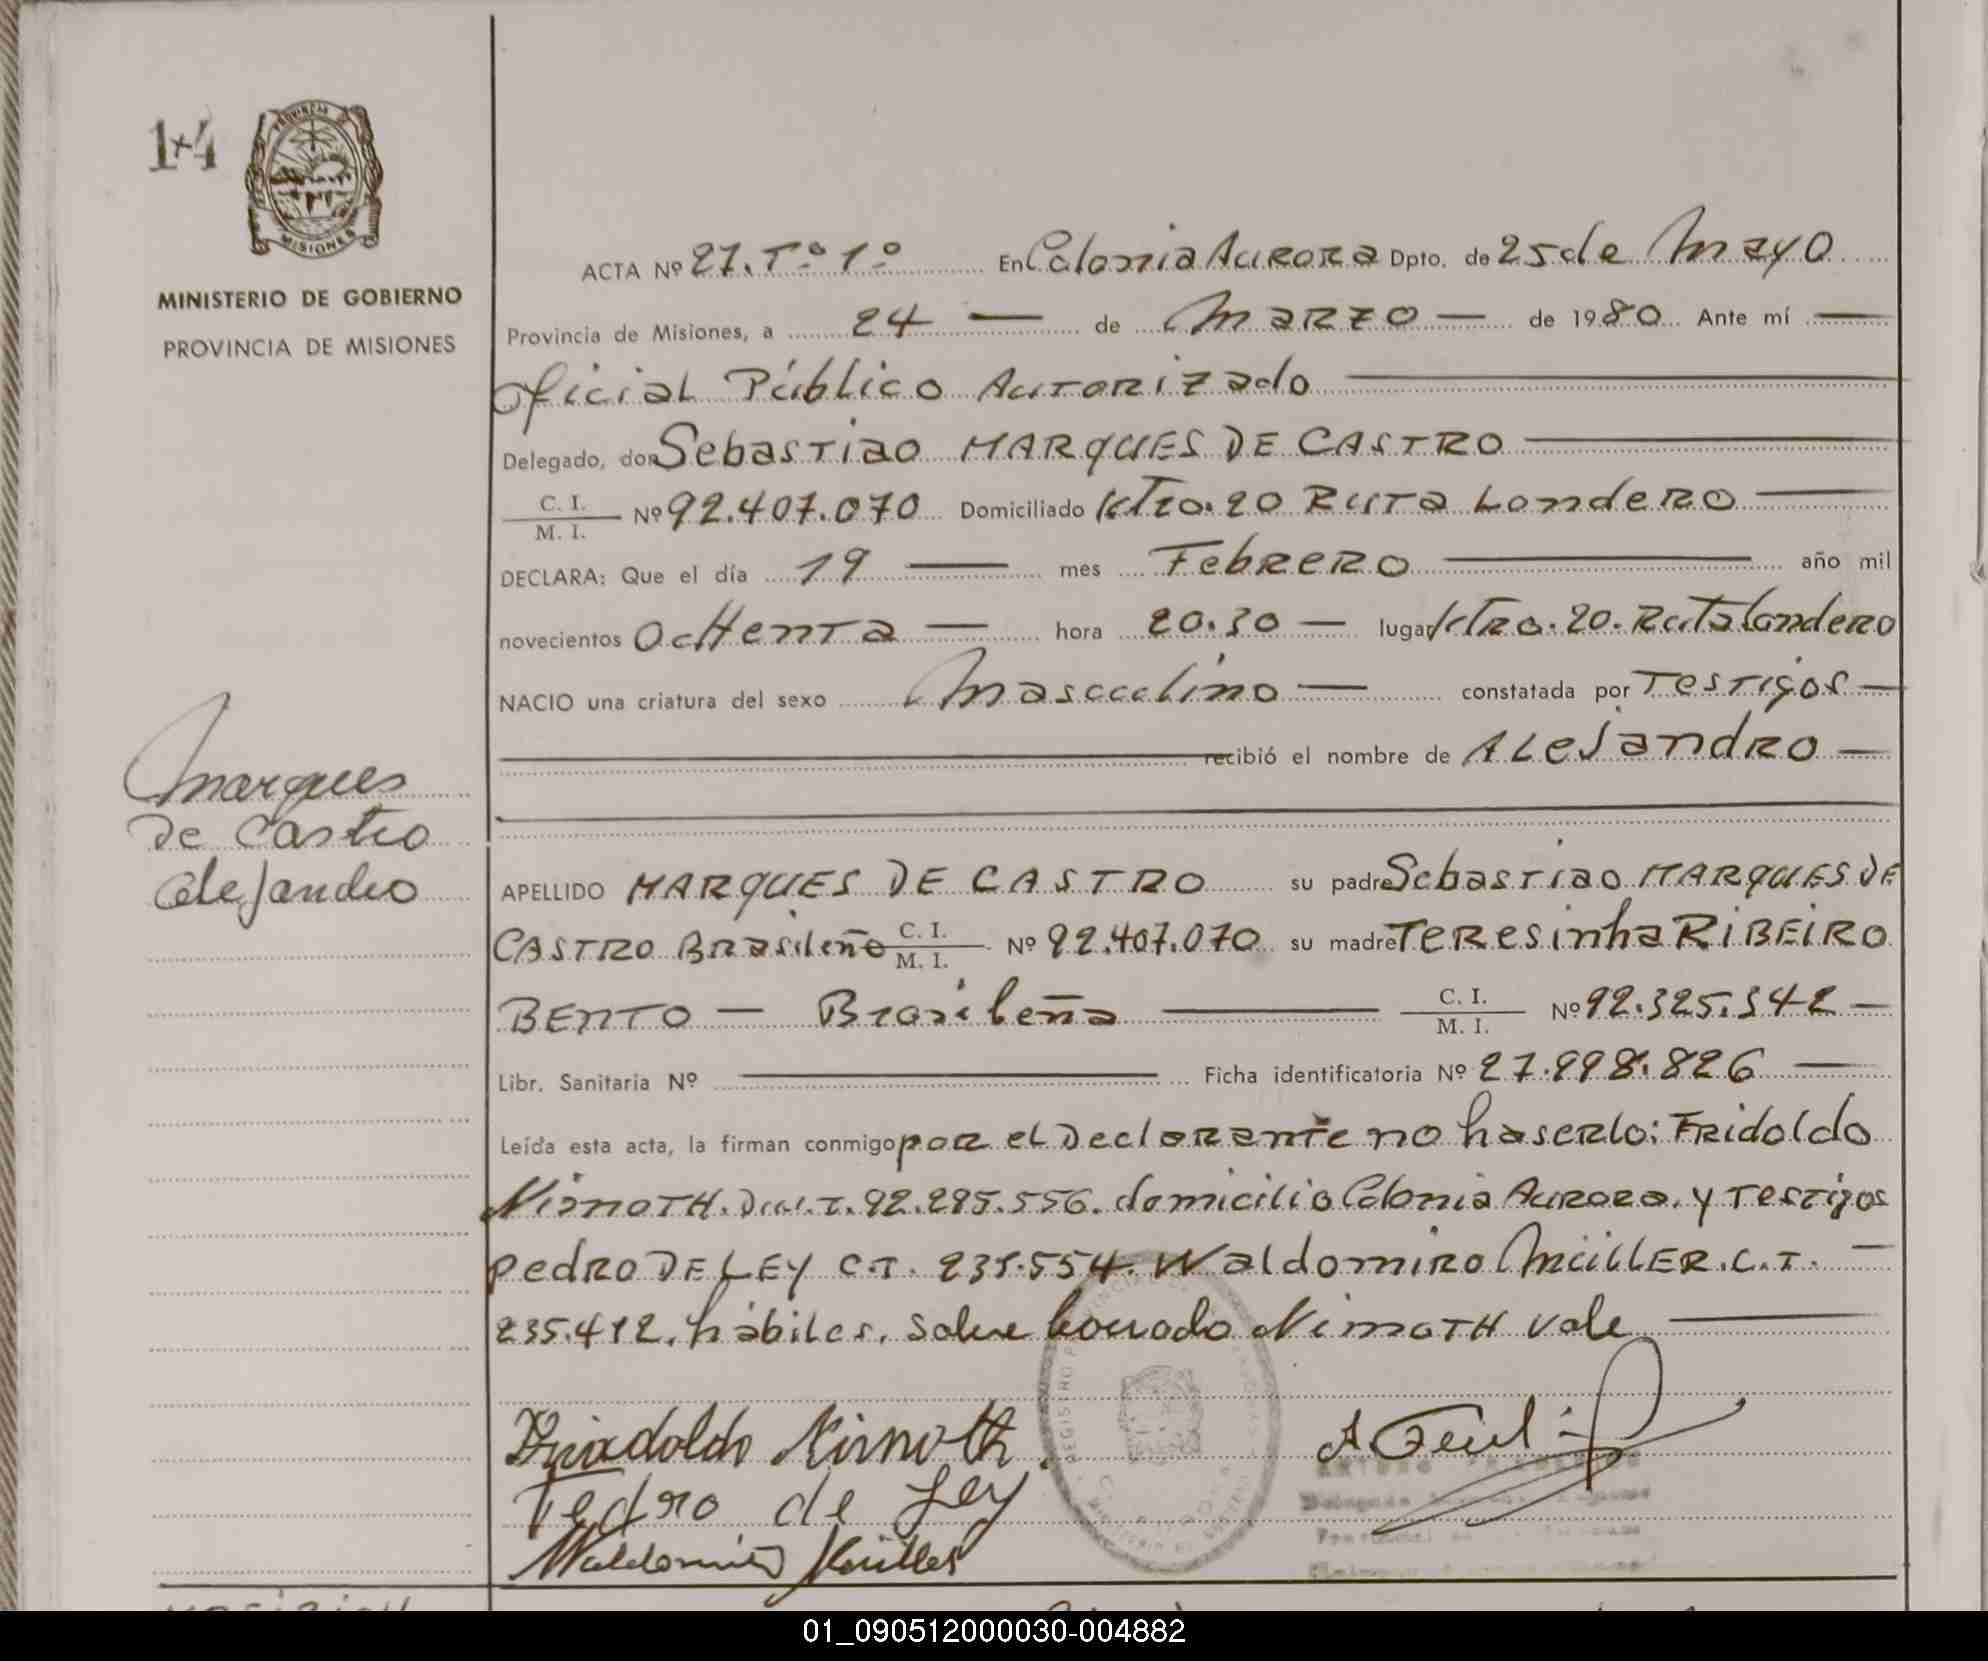 14
PROVINCIA DE
MISIONES
MINISTERIO DE GOBIERNO
PROVINCIA DE MISIONES
Marques
De Castro
Alejandro
ACTA Nº 27. Tº 1º En Colonia Aurora Dpto. de 25 de Mayo
Provincia de Misiones, a 24 — de Marzo — de 1980 Ante mí —
Oficial Público Autorizado —
Delegado, don Sebastiao MARQUES DE CASTRO —
C. I.
M. I. Nº 92.407.070 Domiciliado Ktro. 20 Ruta Londero —
DECLARA: Que el día 19 — mes Febrero — año mil
novecientos Ochenta — hora 20.30 — lugar Ktro. 20. Ruta Londero
NACIO una criatura del sexo Masculino — constatada por Testigos —
— recibió el nombre de ALEJandro —
APELLIDO MARQUES DE CASTRO su padre Sebastiao MARQUES DE
CASTRO Brasileño C. I. M. I. Nº 92.407.070 su madre Teresinha RiBEiRO
BENTO — Brasileña — C. I. M. I. Nº 92.325.342 —
Libr. Sanitaria Nº — Ficha identificatoria Nº 27.998.826 —
Leída esta acta, la firman conmigo por el Declarante no haserlo: Fridoldo
NirnoTH. D.N.I. 92.295.556. domicilio Colonia Aurora. y Testigos
Pedro DE LEY C.I. 235.554. Waldomiro MüllER. C.I. —
235.412. hábiles. Sobre borrado NirnoTH vale —
Fridoldo Nirnoth.
Pedro de Ley
Waldomiro Müller
01_090512000030-004882